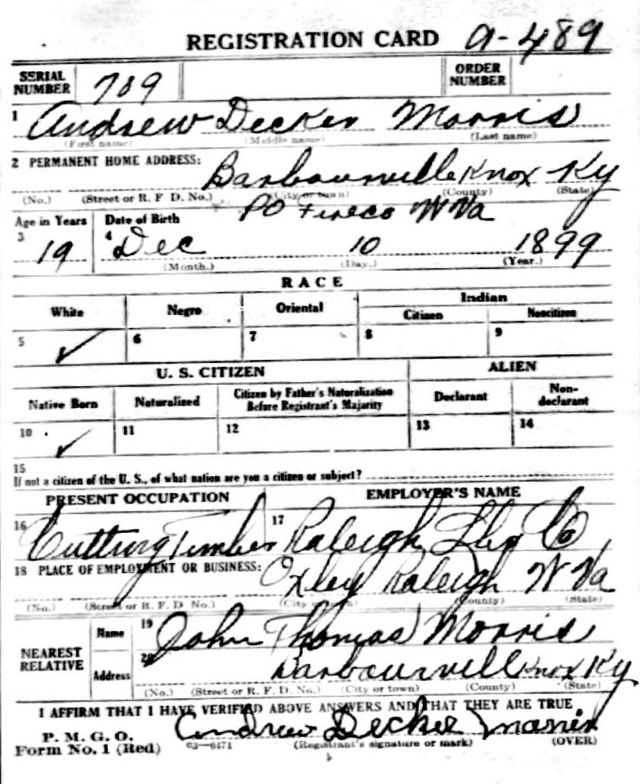 REGISTRATION CARD a-489
SERIAL NUMBER 709 ORDER NUMBER
1 Andrew Decker Morris
(First name) (Middle name) (Last name)
2 PERMANENT HOME ADDRESS: Barbourville Knox Ky
(No.) (Street or R. F. D. No.) (City or town) (County) (State)
PO Fireco W Va
Age in Years Date of Birth
3 19 4 Dec 10 1899
(Month.) (Day.) (Year.)
RACE
White Negro Oriental Indian
Citizen Noncitizen
5 ✓ 6 7 8 9
U. S. CITIZEN ALIEN
Native Born Naturalized Citizen by Father's Naturalization Before Registrant's Majority Declarant Non-declarant
10 ✓ 11 12 13 14
15
If not a citizen of the U. S., of what nation are you a citizen or subject?
PRESENT OCCUPATION EMPLOYER'S NAME
16 Cutting Timber 17 Raleigh Lbr Co
18 PLACE OF EMPLOYMENT OR BUSINESS: Oxley Raleigh W Va
(No.) (Street or R. F. D. No.) (City or town) (County) (State)
NEAREST RELATIVE
Name 19 John Thomas Morris
Address 20 Barbourvill Knox Ky
(No.) (Street or R. F. D. No.) (City or town) (County) (State)
I AFFIRM THAT I HAVE VERIFIED ABOVE ANSWERS AND THAT THEY ARE TRUE
P. M. G. O.
Form No. 1 (Red) 03-6171 Andrew Decker Morris
(Registrant's signature or mark) (OVER)